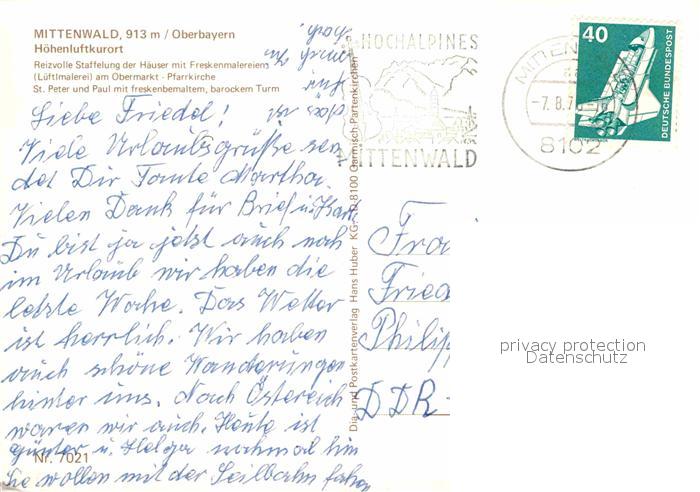 MITTENWALD, 913 m / Oberbayern
Höhenluftkurort
Reizvolle Staffelung der Häuser mit Freskenmalereien
(Lüftlmalerei) am Obermarkt - Pfarrkirche
St. Peter und Paul mit freskenbemaltem, barockem Turm
Liebe Friedel!
Viele Urlaubsgrüße sen
det Dir Tante Martha.
Vielen Dank für Brief u. Karte
Du bist ja jetzt auch noch
im Urlaub wir haben die
letzte Woche. Das Wetter
ist herrlich. Wir haben
auch schöne Wanderungen
hinter uns. Nach Östereich
waren wir auch. Heute ist
Günter u. Helga nochmal hin
Sie wollen mit der Seilbahn fahren
Nr. 7021
Dia- und Postkartenverlag Hans Huber KG - D-8100 Garmisch-Partenkirchen
HOCHALPINES
MITTENWALD
MITTEN
-7.8.7
8102
40
DEUTSCHE BUNDESPOST
Frau
Fried
Philip
DDR-
privacy protection
Datenschutz